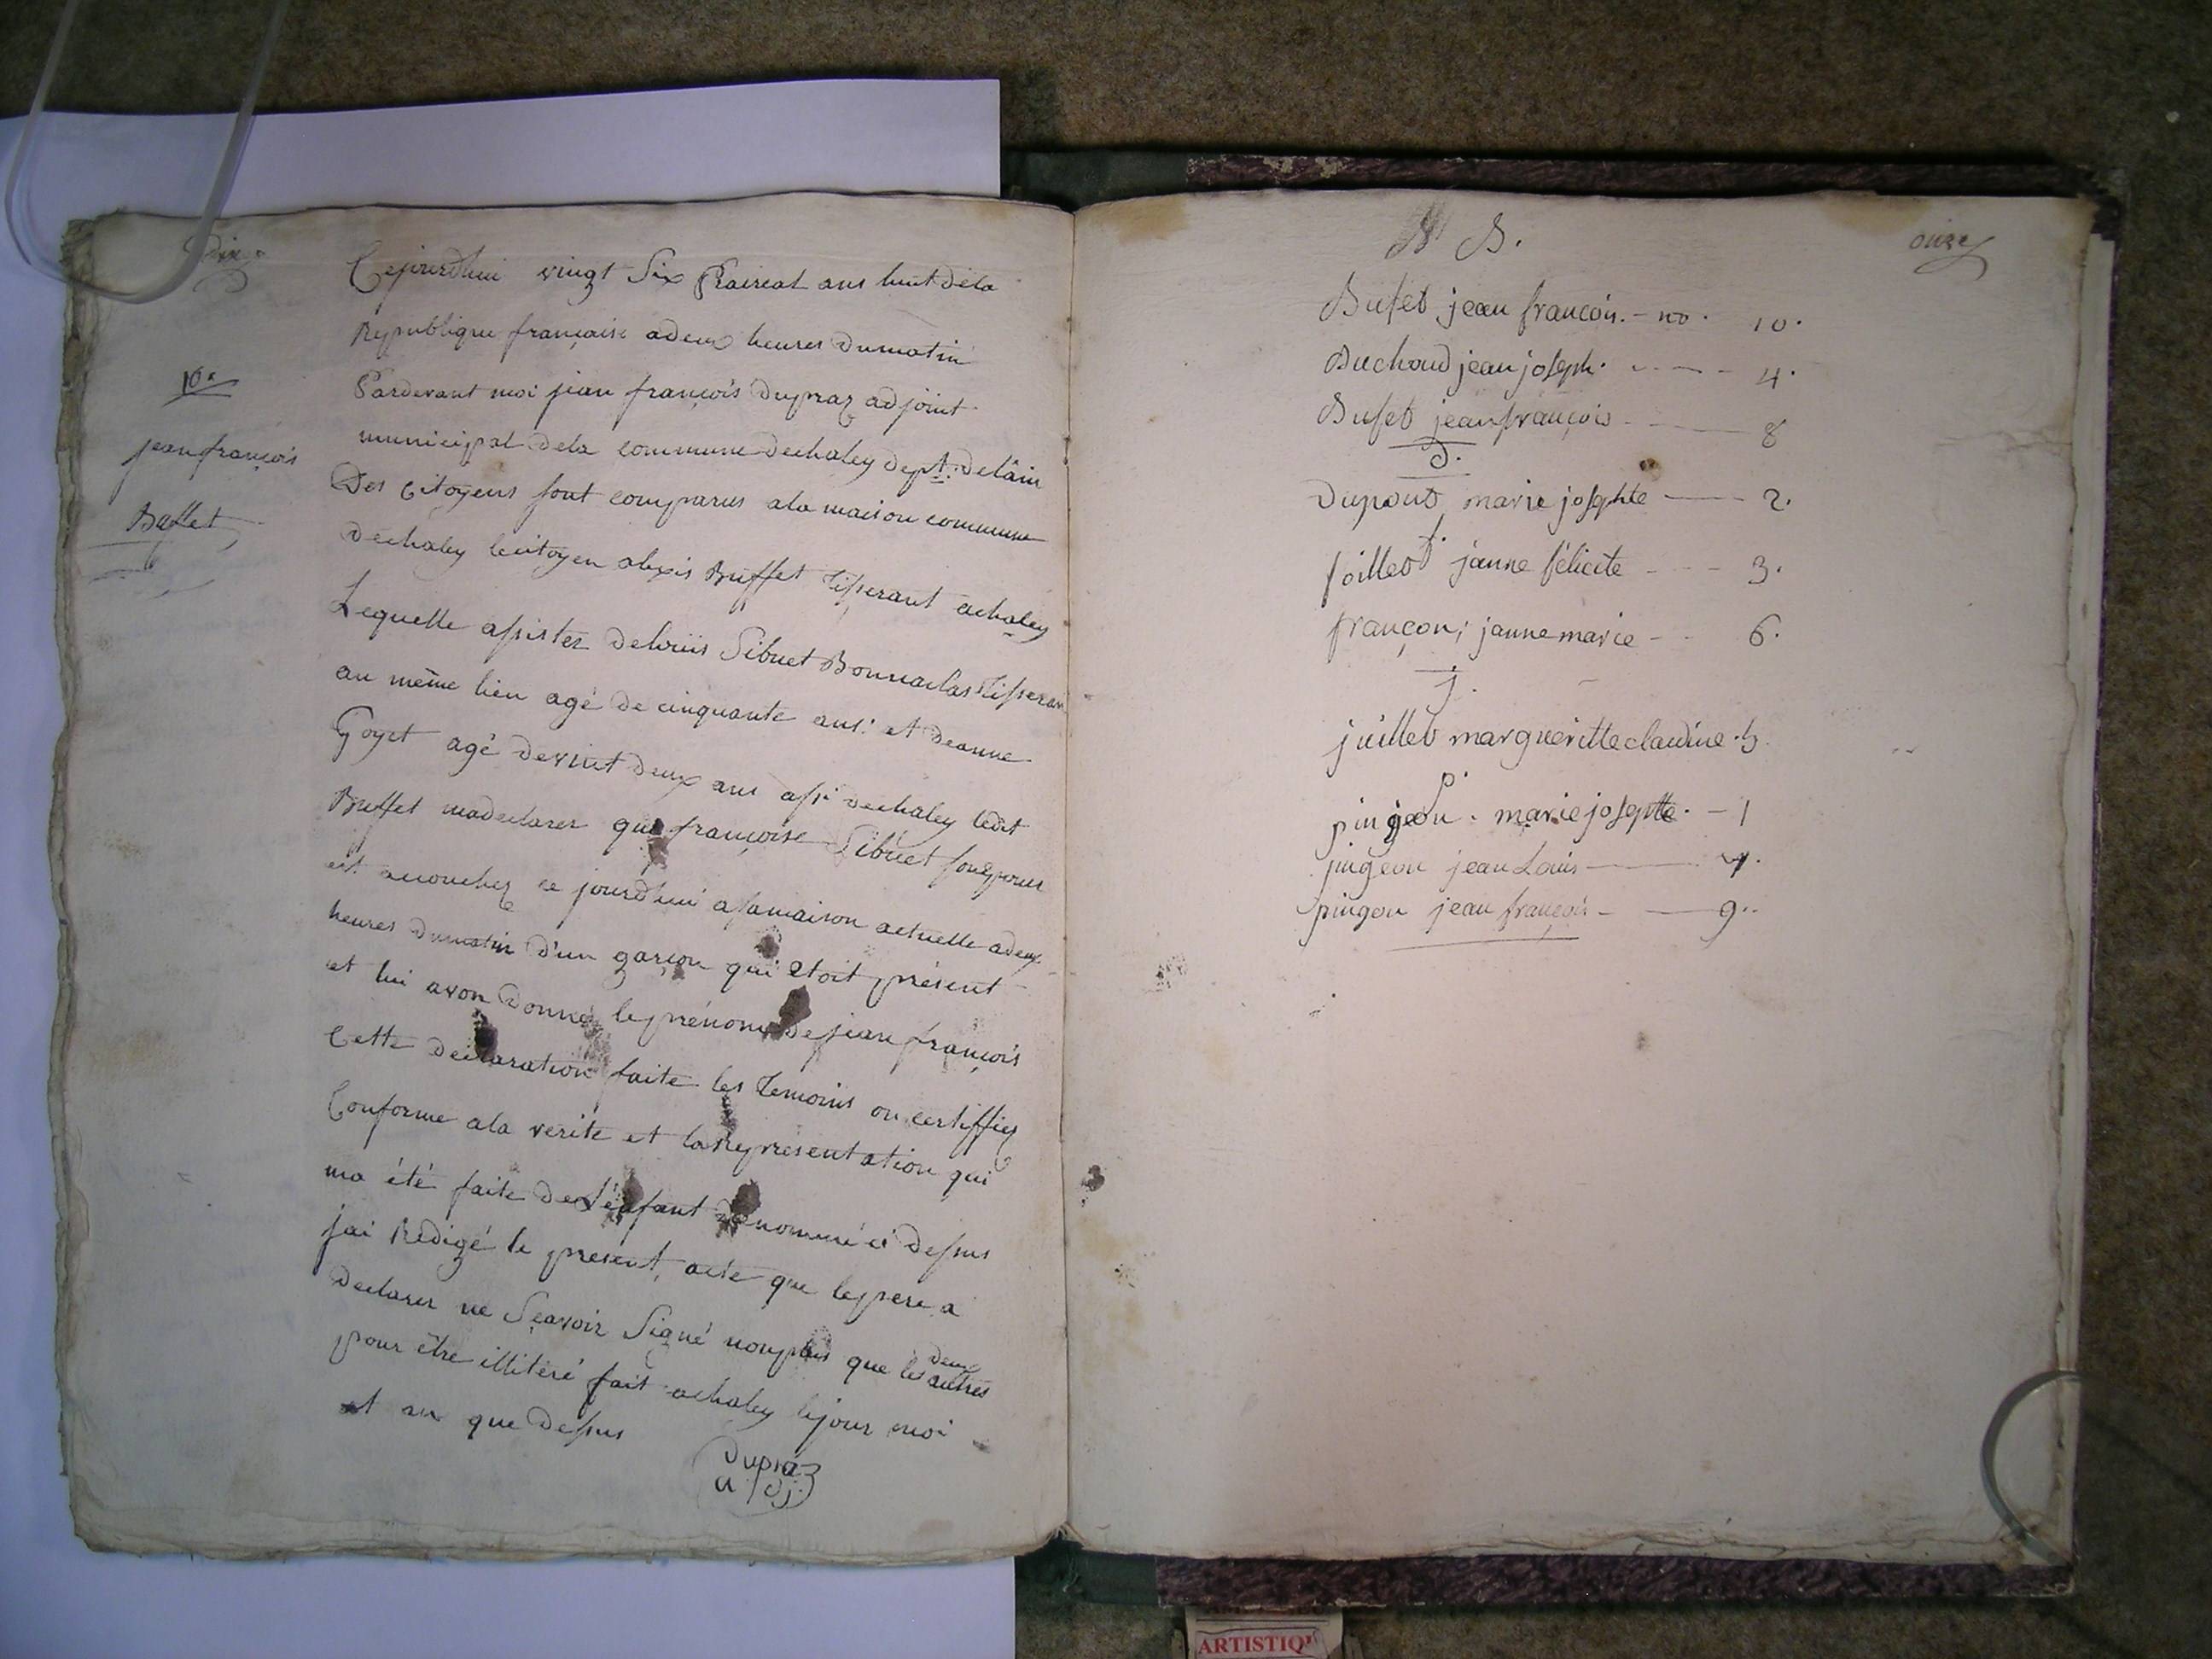 Dix
10e
jean françois
Buffet
Cejourdhui vingt Six Prairial ans huit dela
Republique française adeux heures dumatin
Pardevant moi jean françois Dupraz adjoint
municipal dela commune dechaley dept. delâin
Des Citoyens sont comparus ala maison commune
dechaley lecitoyen alexis Buffet Tisserant achaley
Lequelle assistez delouis Sibuet Bonnaclas Tisseran
au même lieu agé de cinquante ans: et deanne
Goyet agé devint deux ans assi dechaley ledit
Buffet madeclarer que françoise Sibuet
est accouchez ce jourdhui asamaison actuelle adeux
heures dumatin d'un garçon qui etoit présent
et lui avon donné leprénom de jean françois
Cette declaration faite les Temoins on certiffiez
Conforme ala verite et la Representation qui
ma été faite de l'enfant denommé ci dessus
jai Rédigé le present acte que lepere a
declarer ne Sçavoir Signé nonplus que les deux autres
pour être illitéré fait achaley lejour moi
et an que dessus
Dupraz
adj.
onze
B.
Bufet jean françois. - no. 10.
Buchoud jean joseph. 4.
Bufet jean françois 8
D.
Dupont marie josephte 2.
f.
foillet janne félicite 3.
françon; janne marie 6.
j.
juillet marguerittte claudine. 5.
P.
pingeon. marie josephte. - 1
pingeon jean Louis 7.
pingon jean françois 9.
ARTISTIQ